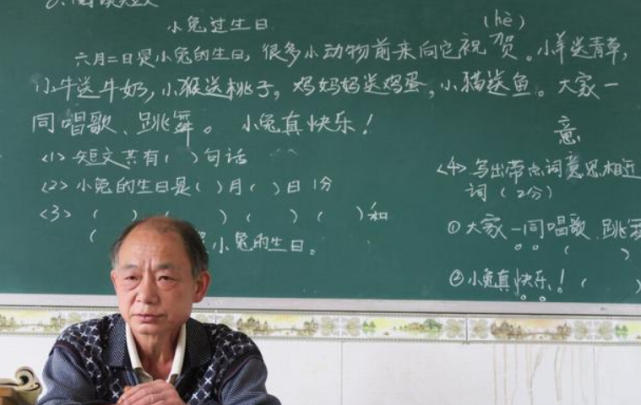 小兔过生日
(hè)
六月二日是小兔的生日，很多小动物前来向它祝贺。小羊送青草，
小牛送牛奶，小猴送桃子，鸡妈妈送鸡蛋，小猫送鱼。大家一
同唱歌、跳舞。 小兔真快乐！
意
<1> 短文共有（ ）句话
<2> 小兔的生日是（ ）月（ ）日 1分
<3> （ ） ）（ ）（ ）和
（ 小兔的生日。
<4> 写出带点词意思相近
词（2分）
①大家一同唱歌、跳舞
（ ）
②小兔真快乐！（ ）